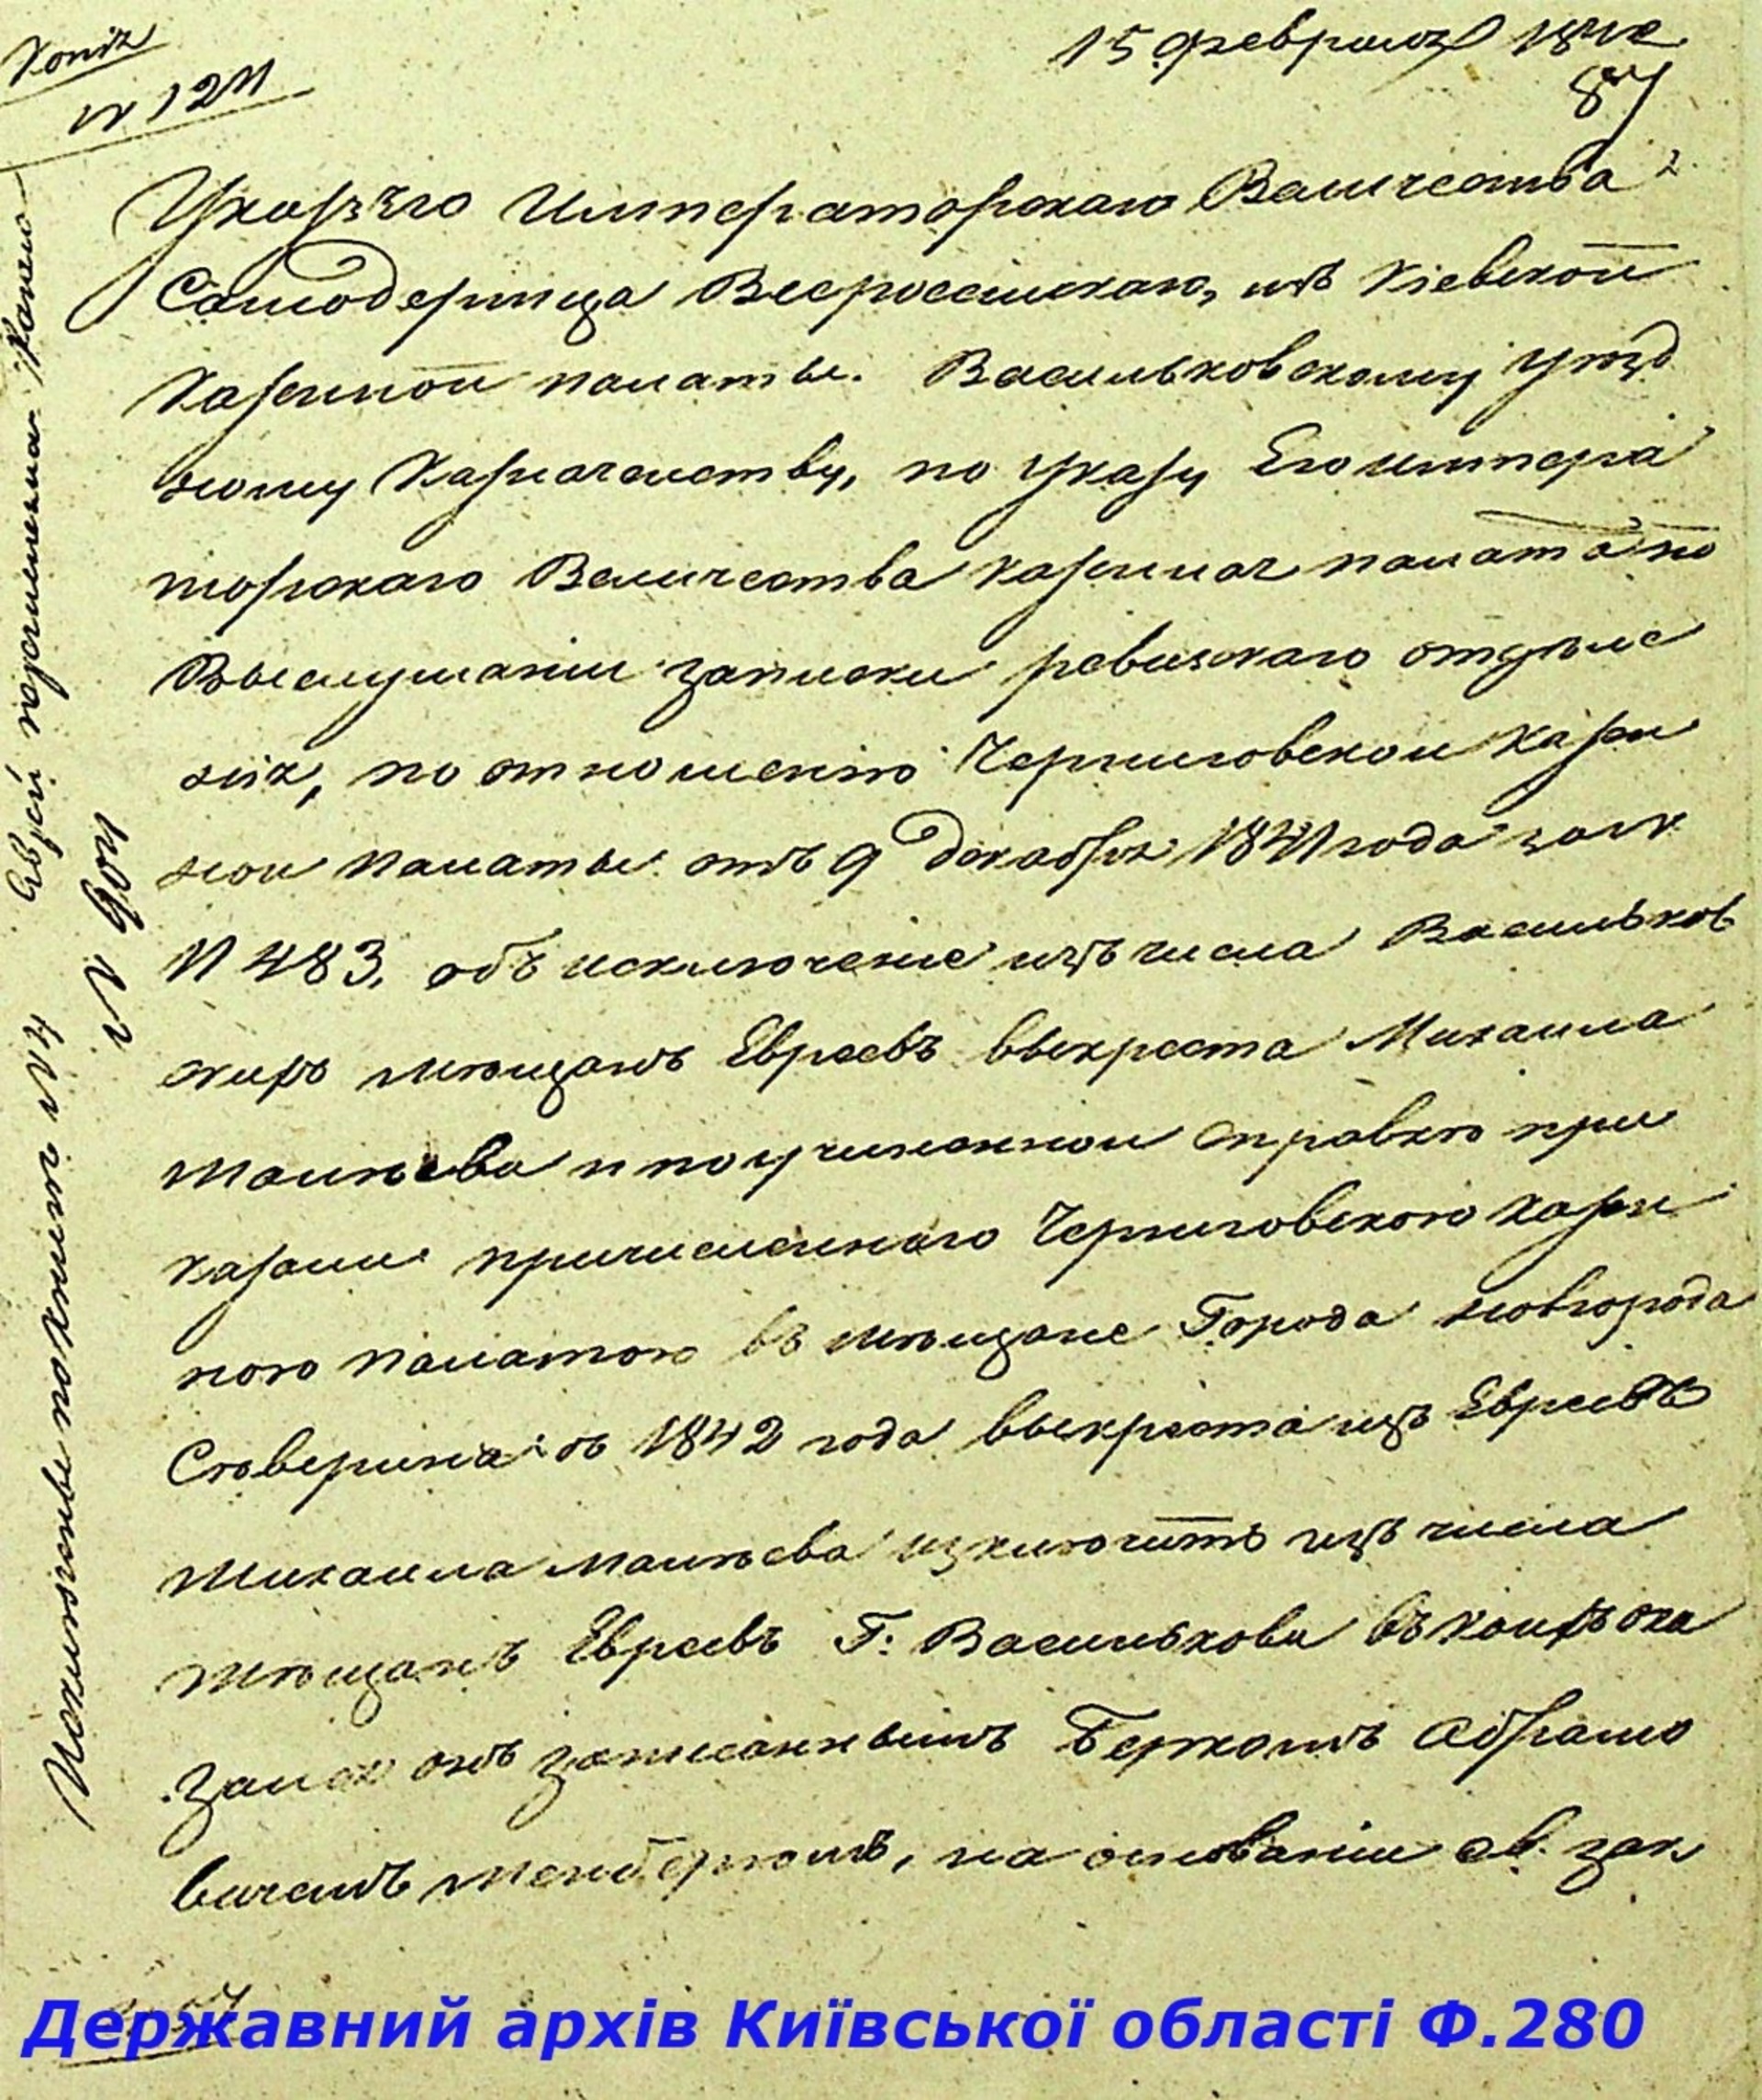 Копія
№ 1211
15 февраля 1842
87
Указъ Его Императорскаго Величества
Самодержца Всероссійскаго, изъ Кіевской
Казенной палаты. Васильковскому уезд
ному Казначейству, по указу Его Импера
торскаго Величества казенная палата по
Выслушаніи записки ревизскаго отделе
нія, по отношенію Черниговской казен
ной палаты отъ 9 декабря 1841 года за
№ 483, объ исключеніе изъ числа Васильков
скихъ мещанъ Евреевъ выкреста Михаила
и по учиненной справке при
казали причисленнаго Черниговскою казен
ною палатою въ мещане Города новгорода
Северска съ 1842 года выкреста изъ Евреевъ
Михаила исключить изъ числа
мещанъ Евреевъ Г: Василькова въ коихъ ска
зался онъ записаннымъ Беркомъ Абрамо
вичемъ, на основаніи св. зак
Исключенъ по книгъ № 4
№ 901
Державний архів Київської області Ф.280